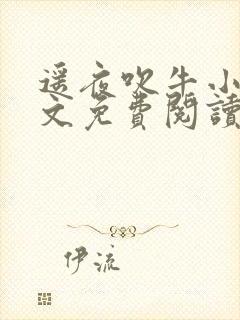 遥夜吹牛小
文免費閱讀
伊流